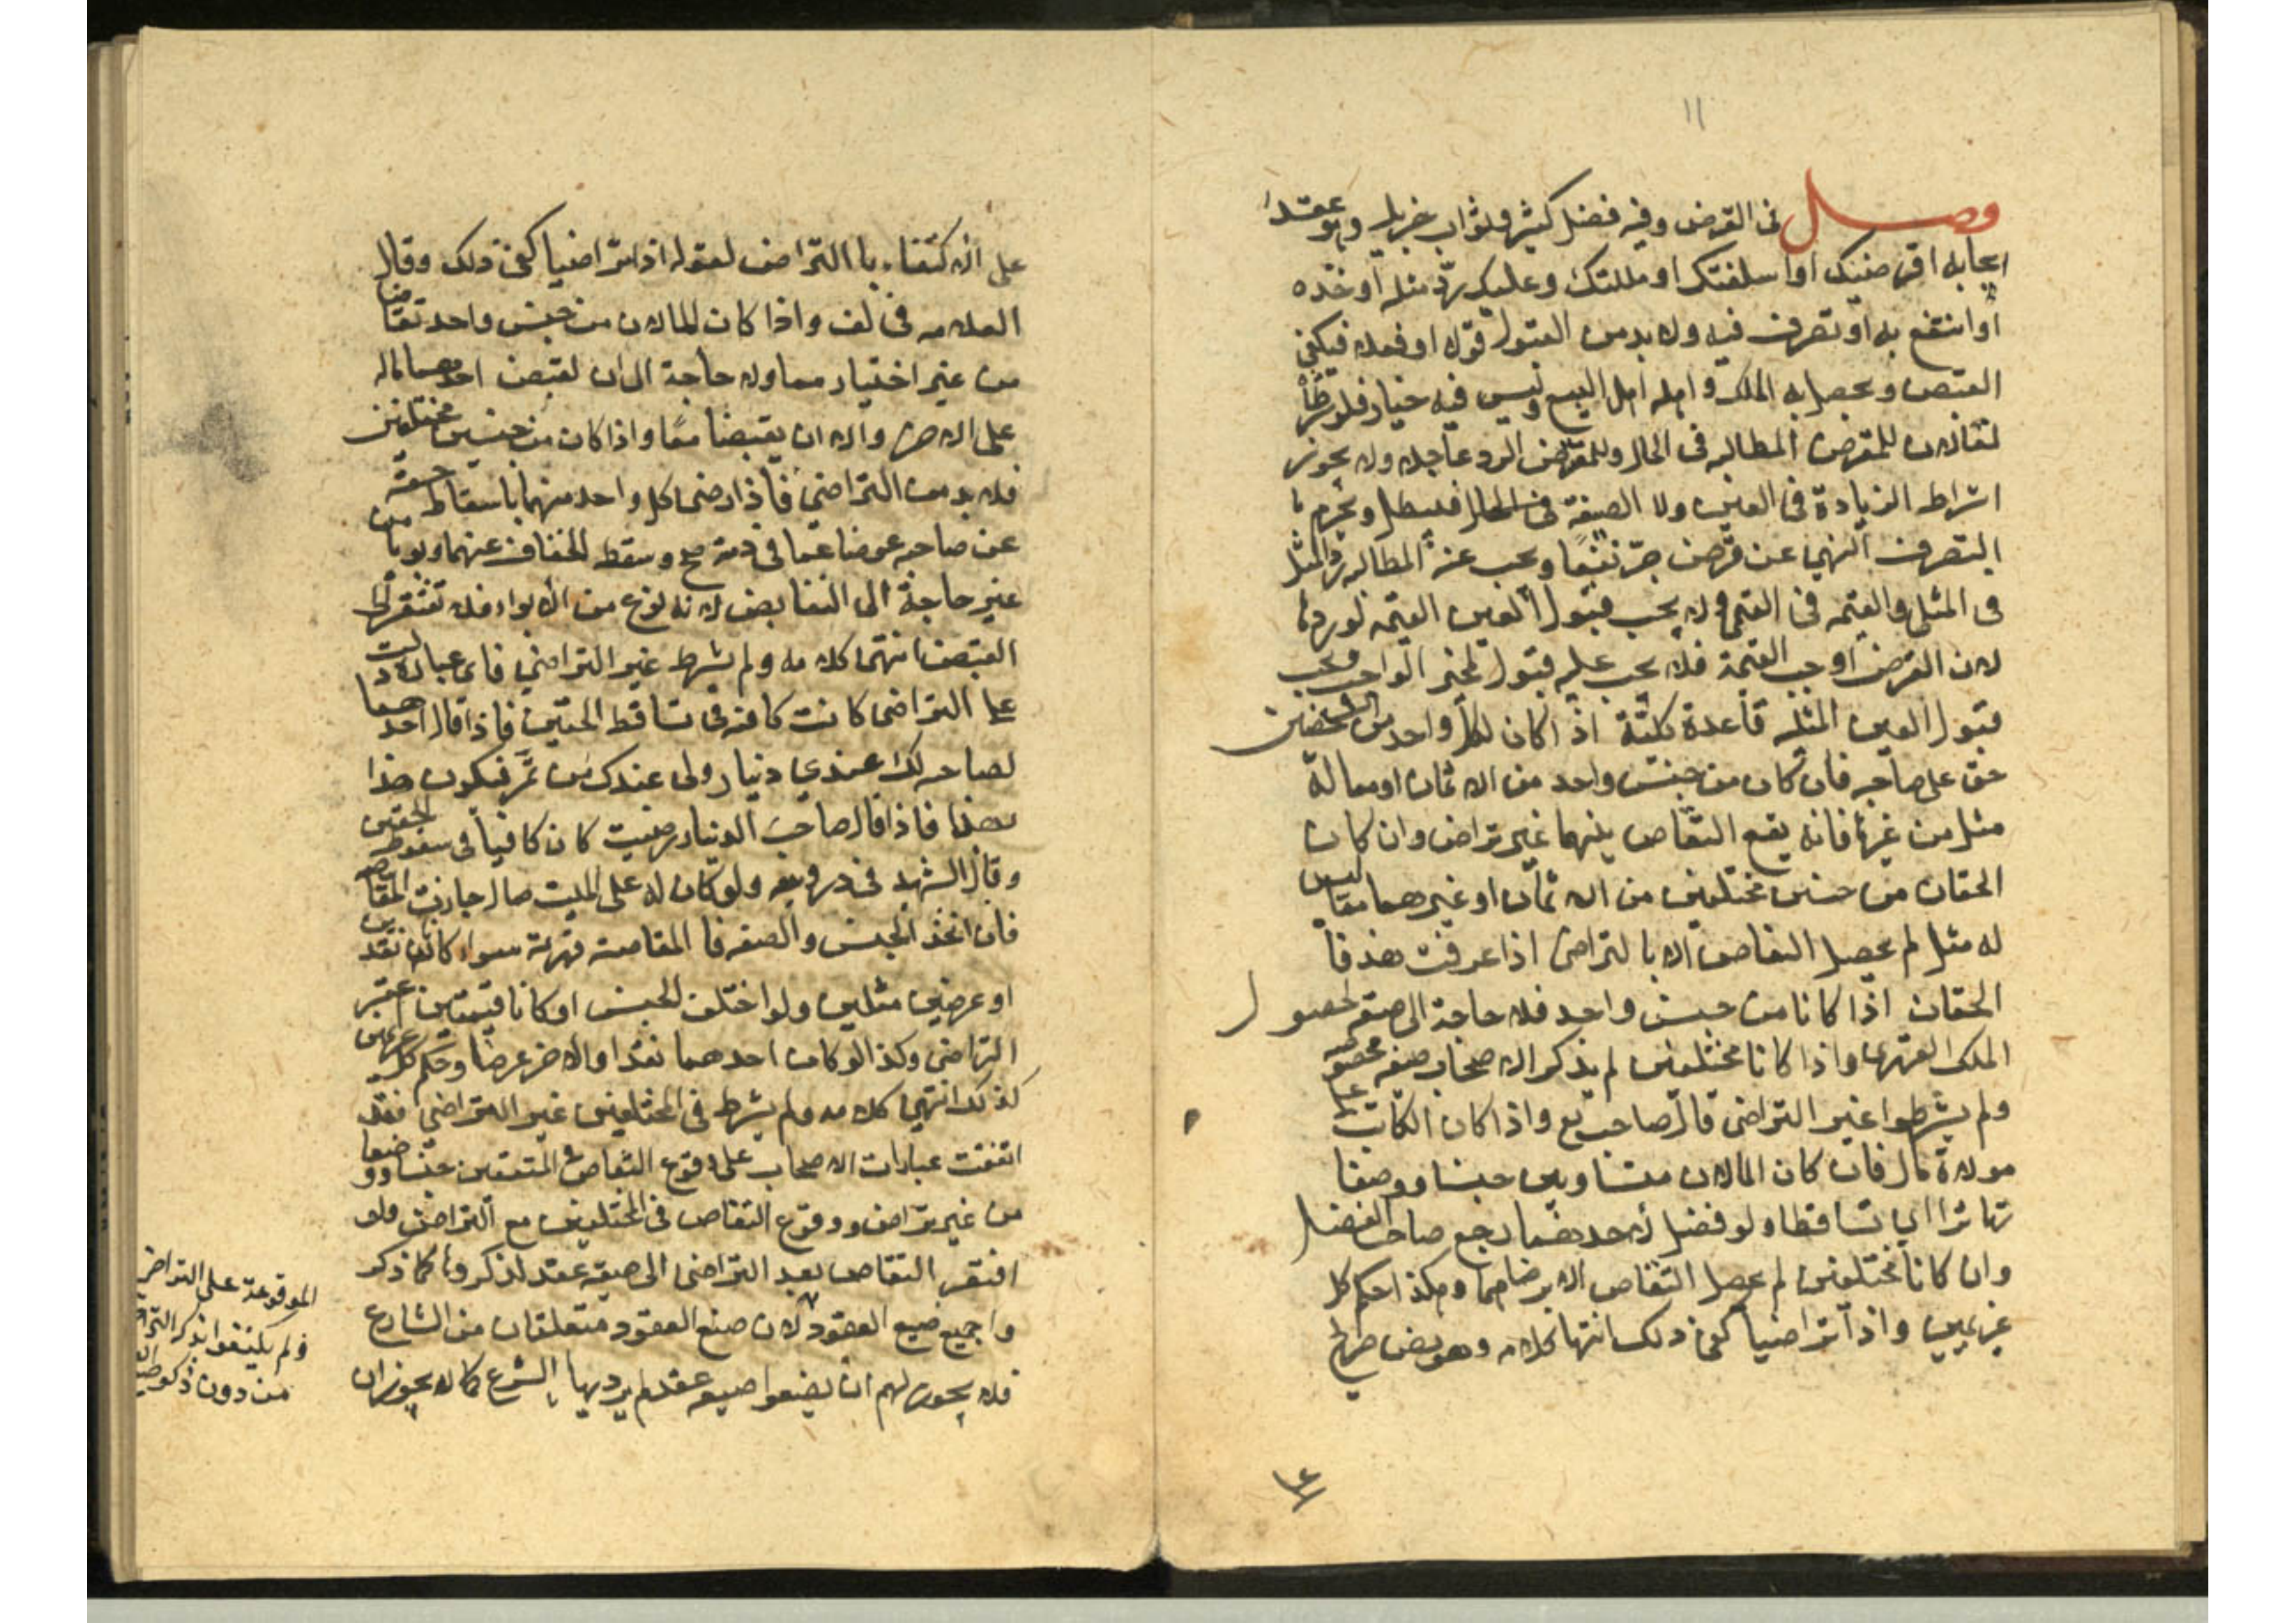 ١١
فصل في القرض وفيه فضل كثير وثواب جزيل وهو عقد
ايجابه اقرضتك او اسلفتك او ملكتك وعليك ردّ مثله او خذه
او انتفع به او تصرف فيه ولا بد من القبول قولا او فعلا فيكفي
القبض ويحصل به الملك واهله اهل البيع وليس فيه خيار فلو
للمقرض المطالبه في الحال وللمقترض الرد عاجلا ولا يجوز
اشراط الزيادة في العين ولا الصفة في الحال فيبطل ويحرم
التصرف النهي عن قرض جرّ نفعا ويجب عند المطالبه ردّ المثل
في المثلي والقيمه في القيمي ولا يجب قبول العين القيميه لو ردها
لان القرض اوجب القيمة فلا يجب عليه قبول غير الواجب ويجب
قبول العين المثليه قاعدة كليّة اذا كان لكل واحد من الشخصين
حق على صاحبه فان كان من جنس واحد من الاثمان او مما له
مثل من غيرها فانه يقع التقاص بينهما غير تراض وان كان
الحقان من جنسين مختلفين من الاثمان او غيرهما مما ليس
له مثل لم يحصل التقاص الا بالتراضي اذا عرفت هذا فا
الحقان اذا كانا من جنس واحد فلا حاجة الى صيغه لحصول
الملك القهري واذا كانا مختلفين لم يذكر الاصحاب صيغه مخصوصه
ولم يشرطوا غير التراضي قال صاحب يع واذا كان للكاتب على
مولاه مال فان كان المالان متساويين جنسا ووصفا
تهاترا اي تساقطا ولو فضل لأحدهما رجع صاحب الفضل
وان كانا مختلفين لم يحصل التقاص الا برضاهما وهكذا حكم كل
غريمين واذا تراضيا كفى ذلك انتها كلامه وهو نص صريح
على الاكتفاء با التراضي لقوله اذا تراضيا كفى ذلك وقال
العلامه في لف واذا كان المالان من جنس واحد تقاضا
من غير اختيارهما ولا حاجة الى ان يقبض احدهما ماله
على الاخر والا ان يقبضا معا واذا كان من جنسين مختلفين
فلا بد من التراضي فاذا رضي كل واحد منهما باسقاط حقه
عن صاحبه عوضا عما في ذمته صح وسقط الحقان عنهما ويريا من
غير حاجة الى التقابض لانه نوع من الابراء فلا تفتقر الى
القبض انتهى كلامه ولم يشرط غير التراضي فاي عباره دلت
على التراضي كانت كافيه في تساقط الحقين فاذا قال احدهما
لصاحبه لك عندي دينار ولي عندك من تمر فيكون هذا
بهذا فاذا قال صاحب الدينار رضيت كان كافيا في سقوط الحقين
وقال الشهيد في دروسه ولو كان له على الميت مال جازت المقاصه
فان اتخذ الجنس والصفه فا المقاصة قهرية سواء كانا نقدين
او عرضين مثليين ولو اختلف الجنس او كانا قيميين اعتبر
التراضي وكذا لو كان احدهما نقدا والاخر عرضا وحكم كل غريمين
كذلك انتهى كلامه ولم يشرط في المختلفين غير التراضي فقد
اتفقت عبارات الاصحاب على وقوع التقاص في المتفقين جنسا ووصفا
من غير تراض ووقوع التقاص في المختلفين مع التراضي ولو
افتقر التقاص بعد التراضي الى صيغه عقد لذكروها كما ذكر
وا جميع صيغ العقود لان صيغ العقود متعلقات من الشارع
فلا يجوز لهم ان يضعوا صيغه عقد لم يرد بها الشرع كما لا يجوز ان
الموقوعة على التراضي
ولم يكتفوا بذكر
من دون ذكر